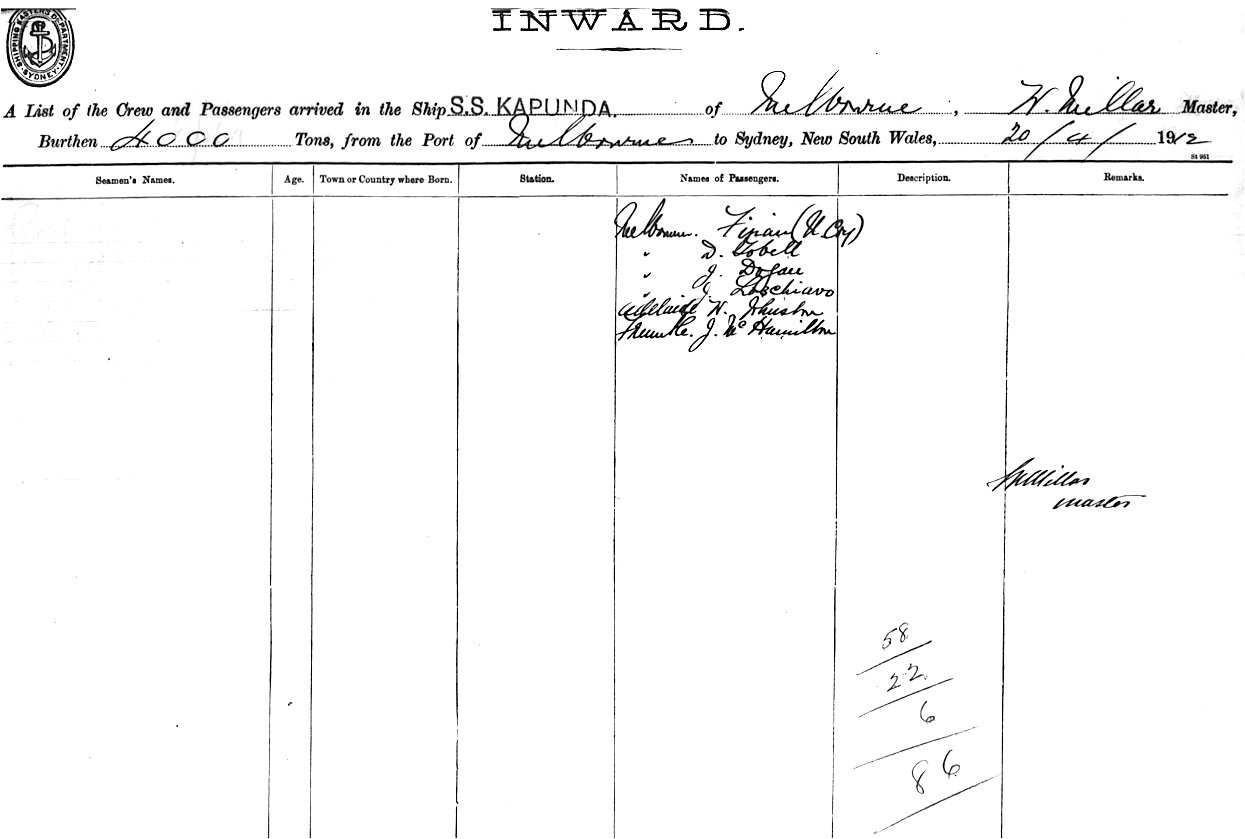 INWARD.
SHIPPING MASTERS DEPARTMENT SYDNEY
A List of the Crew and Passengers arrived in the Ship S.S. KAPUNDA. of Melbourne, W. Millar Master,
Burthen 4000 Tons, from the Port of Melbourne to Sydney, New South Wales, 20/4/1912
St 951
Seamen's Names. Age. Town or Country where Born. Station. Names of Passengers. Description. Remarks.
Melbourne.
" D. Tobell
" J.
" J. Loschiavo
Adelaide W.
J. Mc Hamilton
W Millar
master
58
22
6
86